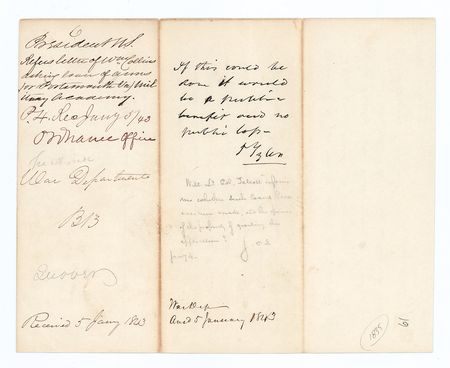 President U.S.
Refers letter of Wm Collins
asking loan of arms
for Portsmouth Va Mil
itary Academy.
P. 4. Rec Jany 5/43
Ordnance Office
War Department
B13
Answer
Received 5 Jany 1843
If this could be
done it would
be a public
benefit and no
public loss
J Tyler
Will Lt Col. Talcott inform
me whether such loans have
been made, and
of the propriety of granting this
application?
War Dep
5 January 1843
1835
19